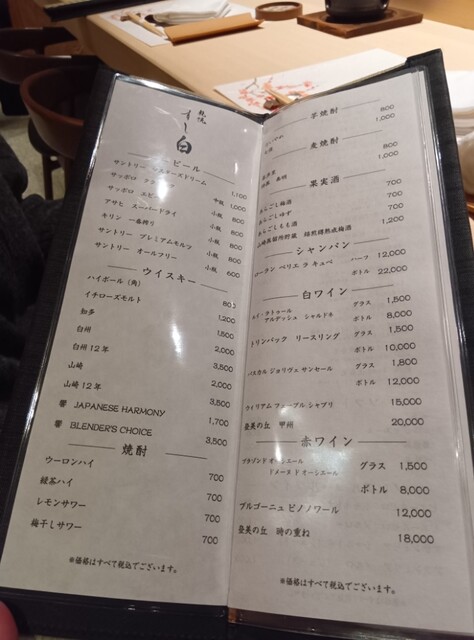 すし白
ビール
サントリー マスターズドリーム 1,100
サッポロ クラシック 中瓶 1,000
サッポロ ヱビス 小瓶 800
アサヒ スーパードライ 小瓶 800
キリン 一番搾り 小瓶 800
サントリー プレミアムモルツ 小瓶 800
サントリー オールフリー 小瓶 600
ウイスキー
ハイボール (角) 800
イチローズモルト 1,200
知多 1,500
白州 2,000
白州 12年 3,500
山崎 2,000
山崎 12年 3,500
響 JAPANESE HARMONY 1,700
響 BLENDER'S CHOICE 3,500
焼酎
ウーロンハイ 700
緑茶ハイ 700
レモンサワー 700
梅干しサワー 700
※価格はすべて税込でございます。
芋焼酎
800
1,000
麦焼酎
800
1,000
果実酒
あらごし梅酒 700
あらごしゆず 700
あらごしもも酒 700
山崎蒸留所貯蔵 焙煎樽熟成梅酒 1,200
シャンパン
ローラン ペリエ ラ キュベ ハーフ 12,000
ボトル 22,000
白ワイン
ルイ・ラトゥール グラス 1,500
アルデッシュ シャルドネ ボトル 8,000
トリンバック リースリング グラス 1,500
ボトル 10,000
パスカル ジョリヴェ サンセール グラス 1,800
ボトル 12,000
ウィリアム フェーブル シャブリ 15,000
登美の丘 甲州 20,000
赤ワイン
グラス 1,500
ボトル 8,000
ブルゴーニュ ピノノワール 12,000
登美の丘 時の重ね 18,000
※価格はすべて税込でございます。